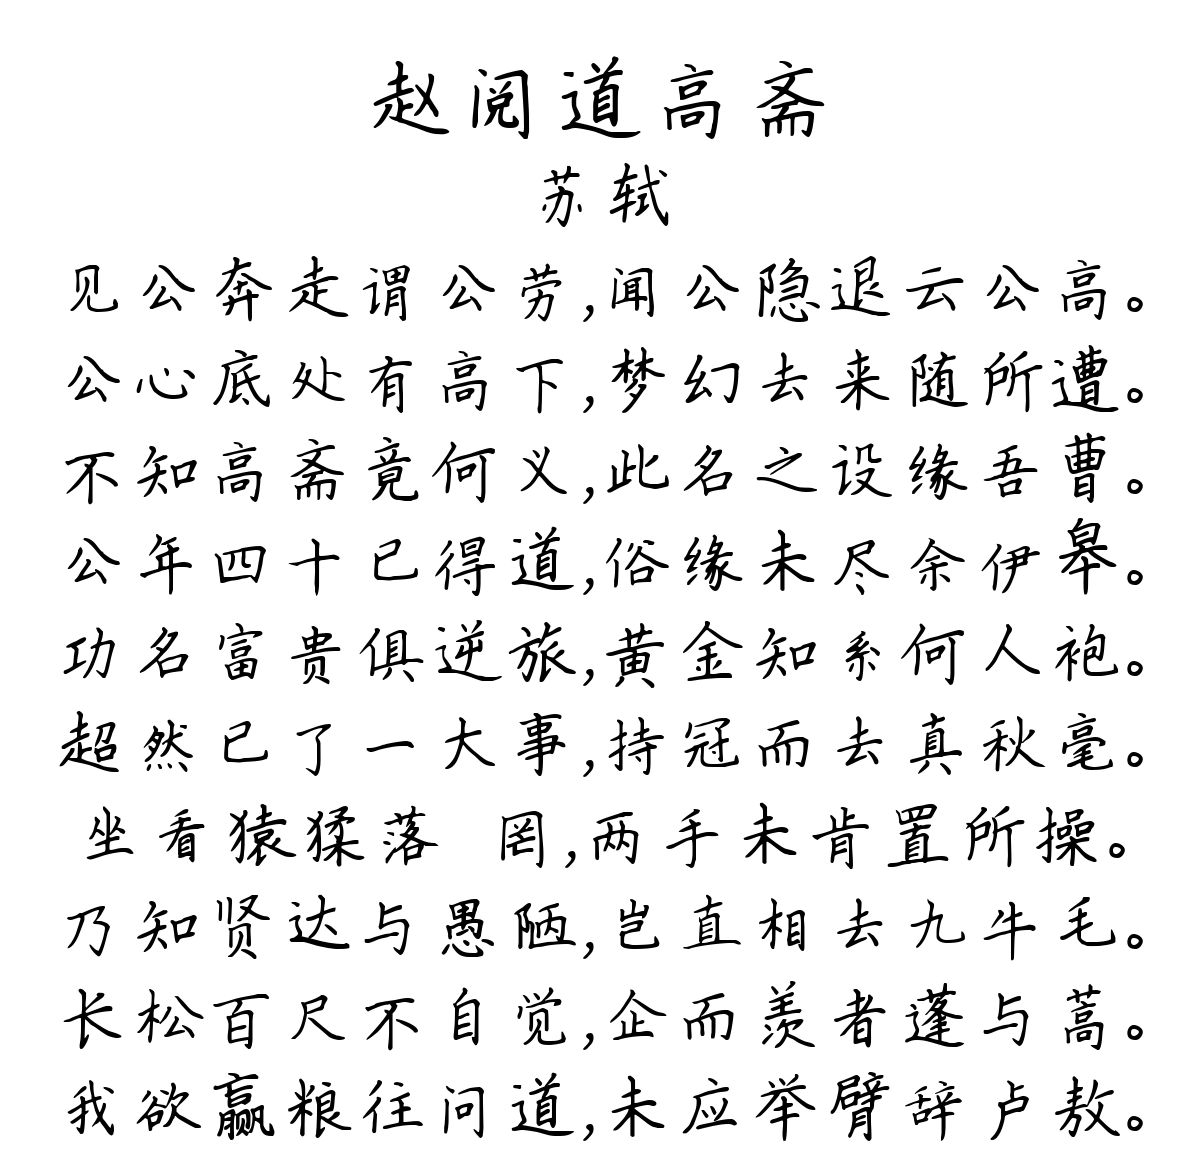 赵阅道高斋
苏轼
见公奔走谓公劳,闻公隐退云公高。
公心底处有高下,梦幻去来随所遭。
不知高斋竟何义,此名之设缘吾曹。
公年四十已得道,俗缘未尽余伊皋。
功名富贵俱逆旅,黄金知系何人袍。
超然已了一大事,持冠而去真秋毫。
坐看猿猱落 罔,两手未肯置所操。
乃知贤达与愚陋,岂直相去九牛毛。
长松百尺不自觉,企而羡者蓬与蒿。
我欲赢粮往问道,未应举臂辞卢敖。